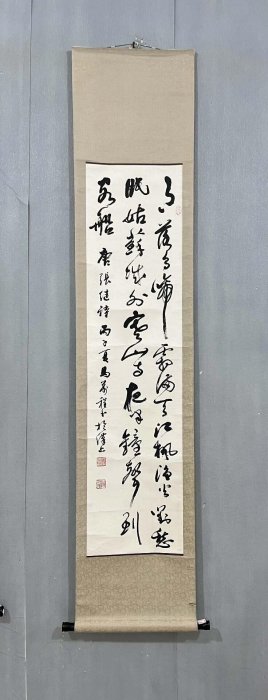 月落烏啼霜滿天江楓漁火對愁
眠姑蘇城外寒山寺夜半鐘聲到
客船 唐張繼詩 丙子夏馬萬程書於津上